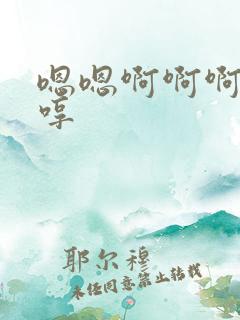 嗯嗯啊啊啊
哼
耶尔穆
未经同意禁止转载